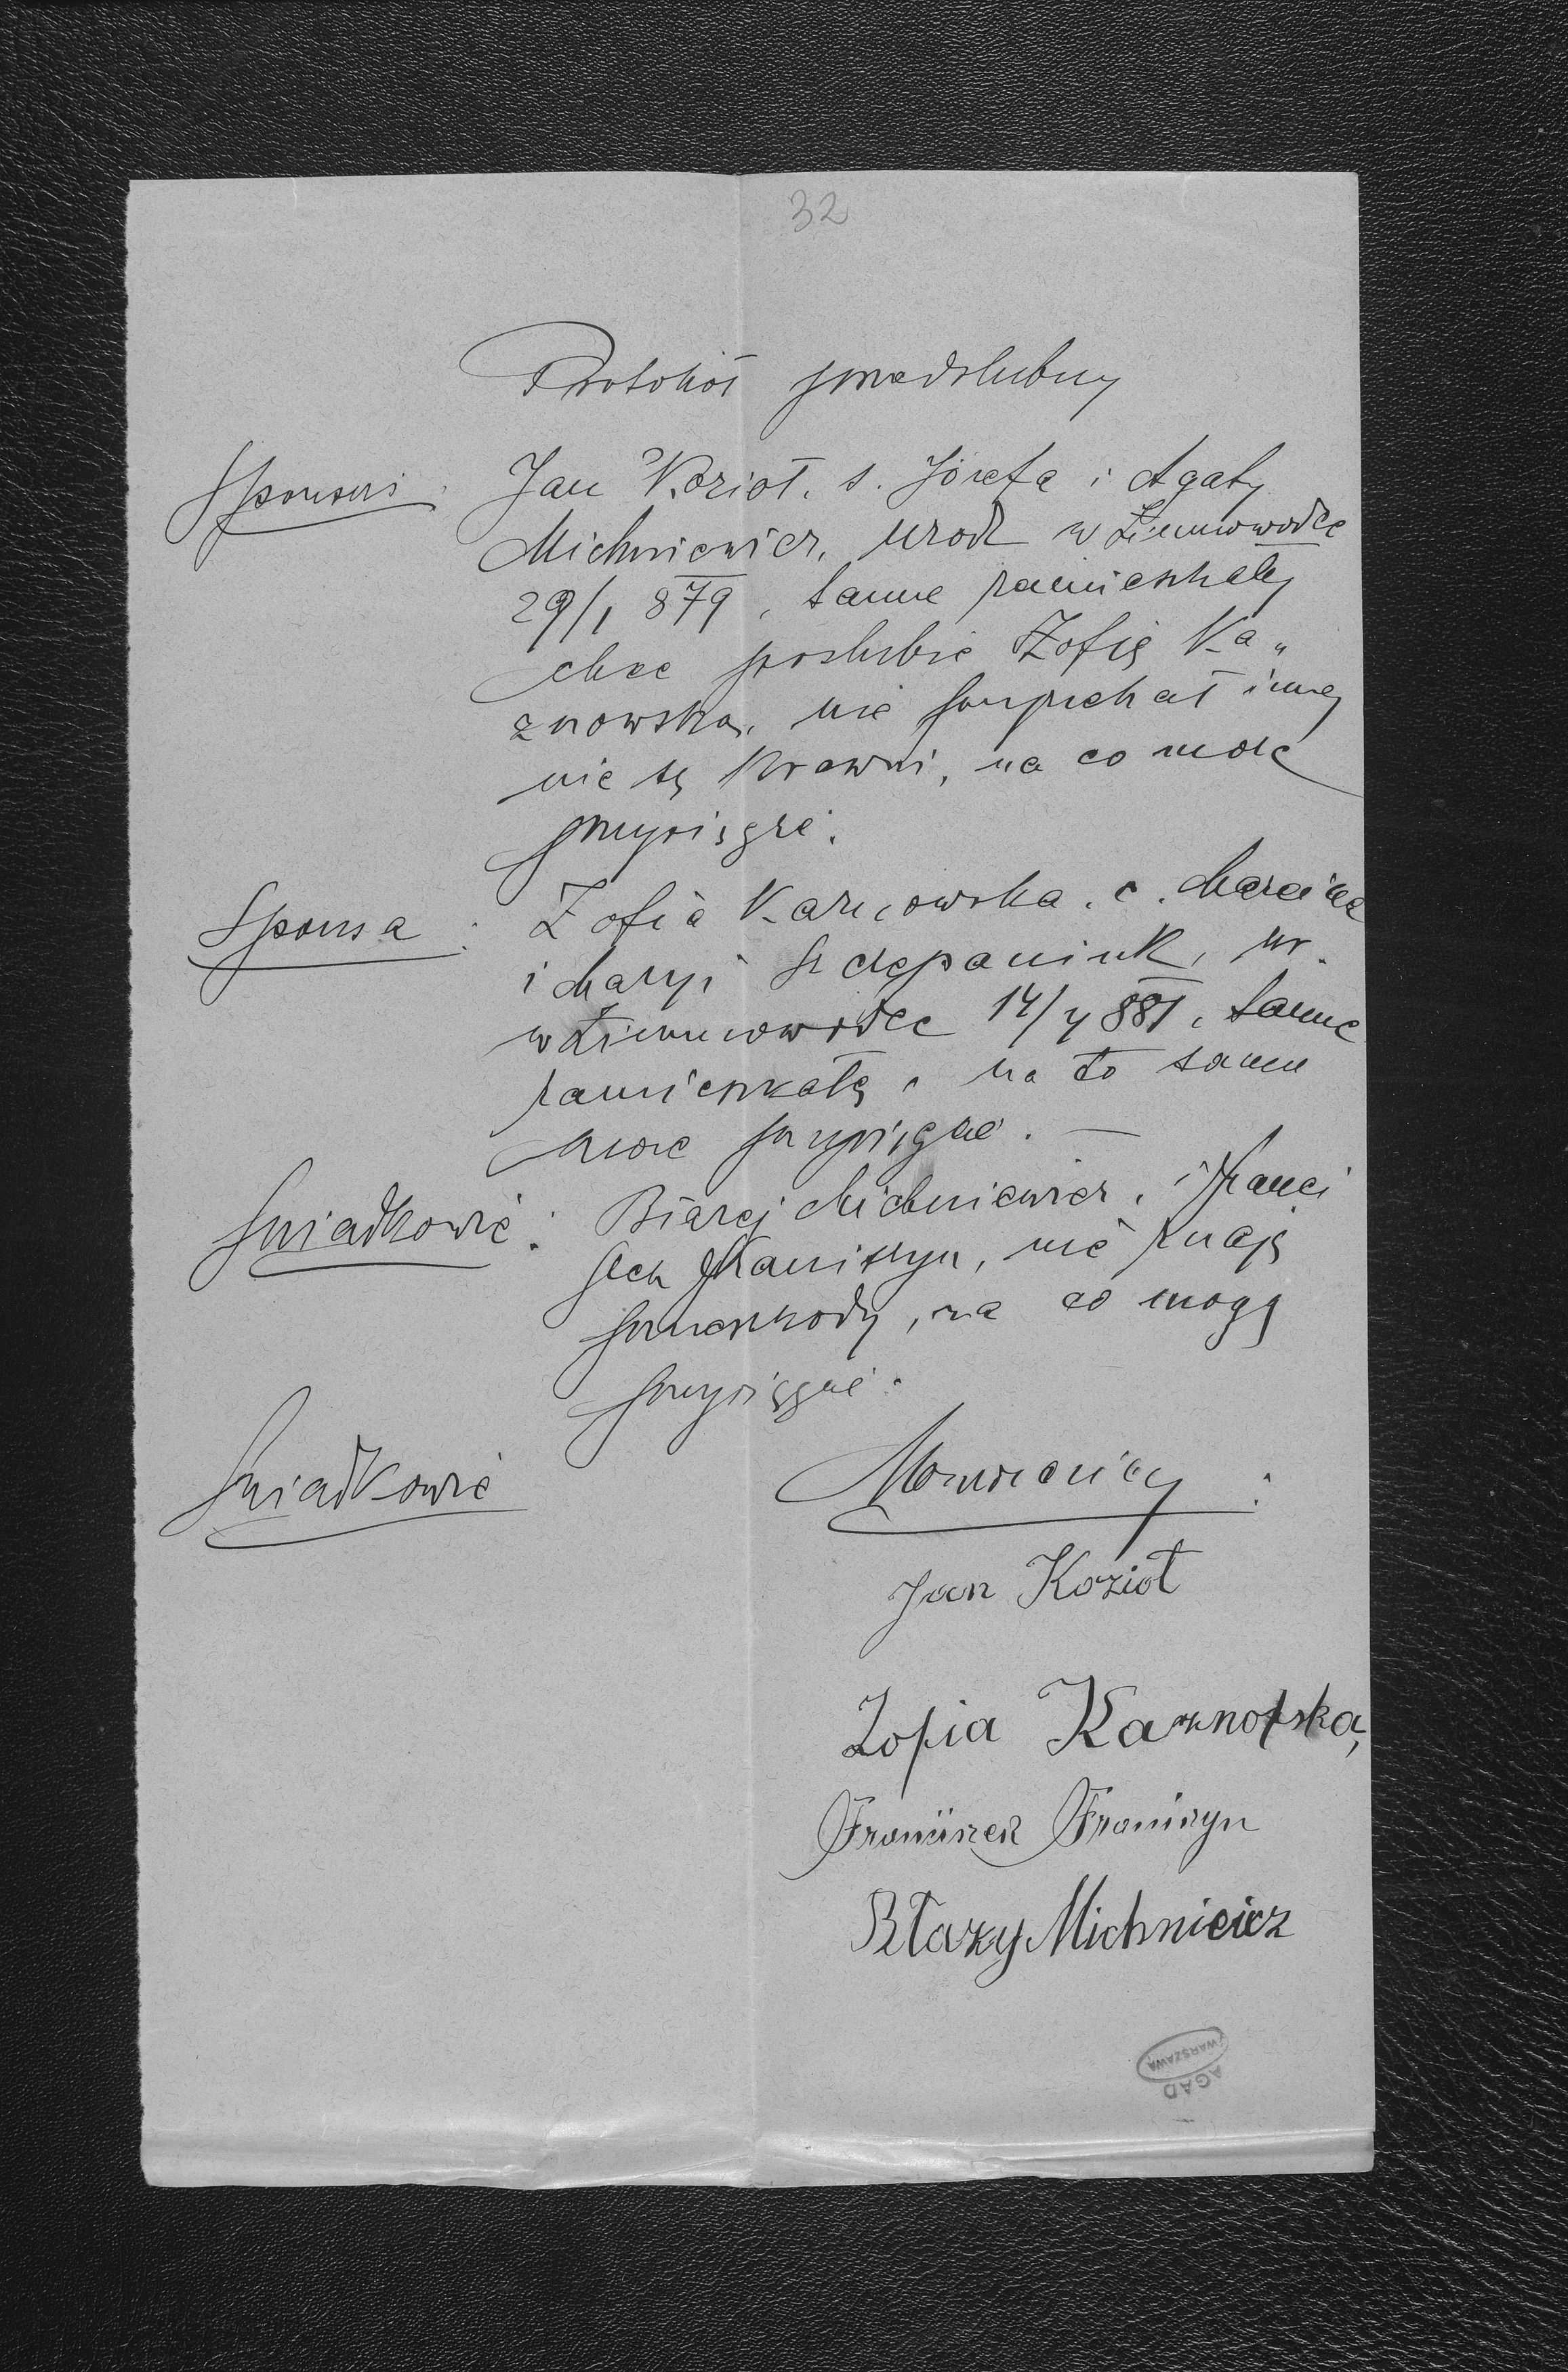 32
Protokół przedślubny
Sponsus: Jan Kozioł, s. Józefa i Agaty
Michniewicz, urodz w Zimnowodce
29/1 879, tamże zamieszkały
chce poślubić Zofię Ka„
znowską, nie przyrzekał innej
nie są krewni, na co może
przysiądz.
Sponsa: Zofia Kaznowska, c. Marcina
i Maryi Szczepaniuk, ur.
w Zimnowodce 14/4 881, tamże
zamieszkała, na to samo
może przysiądz. —
Świadkowie: Błażej Michniewicz, i Franci
szek Franiszyn, nie znają
przeszkody, na co mogą
przysiądz.
Świadkowie Narzeczeni:
Jan Kozioł
Zofia Kaznofska,
Franiiszek Franiszyn
Błaży Michnieicz
WARSZAWA
AGAD